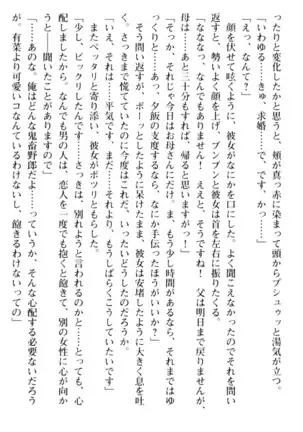 ったりと変化したかと思うと、頬が真っ赤に染まって頭からプシュゥッと湯気が立つ。
「いわゆる……きゅ、求婚……で、って」
「えっ、なんて?」
顔を伏せて呟くように、彼女がなにかを口にした。よく聞こえなかったのでそれを問い
返すと、勢いよく顔を上げ、ブンブンと彼女は首を左右に振りたくる。
「なななっ、なんでもありません! ええと、そうですね! 父は明日まで戻りませんが、
母は……あと三十分もすれば、帰ると思いますが……」
「そっか、それじゃ今日はお母さんにだけ、ま、もう少し時間があるなら、それまではゆ
っくりするか……あっ、夕飯の支度するなら、なにか手伝ったほうがいいか?」
そう問い返すが、今度はボーッとしたように呆けたまま、彼女は安堵したように大きく息を吐
く。さっきまで慌てていたのに今度はこれだ、いったいどうしたのだろうか。
「いえ、それは……平気です、まだ……それより、もうしばらくこうしていたいので」
またペッタリと寄り添い、彼女がポツリともらした。
「少し、ビックリしたんです……さっきは、別れようと言われるのかと……とっても、心
配しましたから。なんでも男の人は、恋人を一度でも抱くと飽きて、別の女性に心が向か
うと……聞いたことがありましたので」
「……あのな。俺はどんな鬼畜野郎だよ……っていうか、そんな心配する必要ないだろう
が。有菜より可愛いコなんているわけないし、飽きるわけないっての」